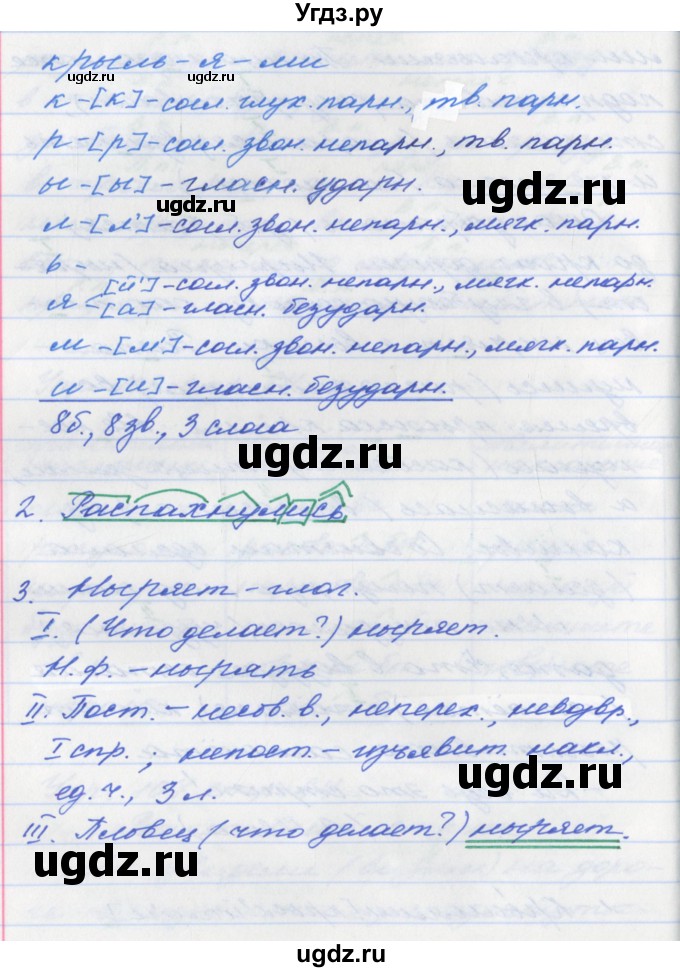 Угдз.ру
крыль-я-ми
ugdz.ru
к-[к]-согл. глух. парн., тв. парн.
р-[р]-согл. звон. непарн., тв. парн.
ы-[ы]-гласн. ударн.
ugdz.ru
ugdz.ru
л-[л']-согл. звон. непарн., мягк. парн.
ь-
[й']-согл. звон. непарн., мягк. непарн.
я-[а]-гласн. безударн.
м-[м']-согл. звон. непарн., мягк. парн.
и-[и]-гласн. безударн.
8б., 8зв., 3 слога
ugdz.ru
2. Распахнулись
ugdz.ru
3. Ныряет-глаг.
I. (Что делает?) ныряет.
ugdz.ru
Н.ф.-нырять
II. Пост.-несов.в., неперех., невозвр.,
I спр., непост.-изъявит. накл.,
ugdz.ru
ед.ч., 3 л.
III. Пловец (что делает?) ныряет.
ugdz.ru
ugdz.ru